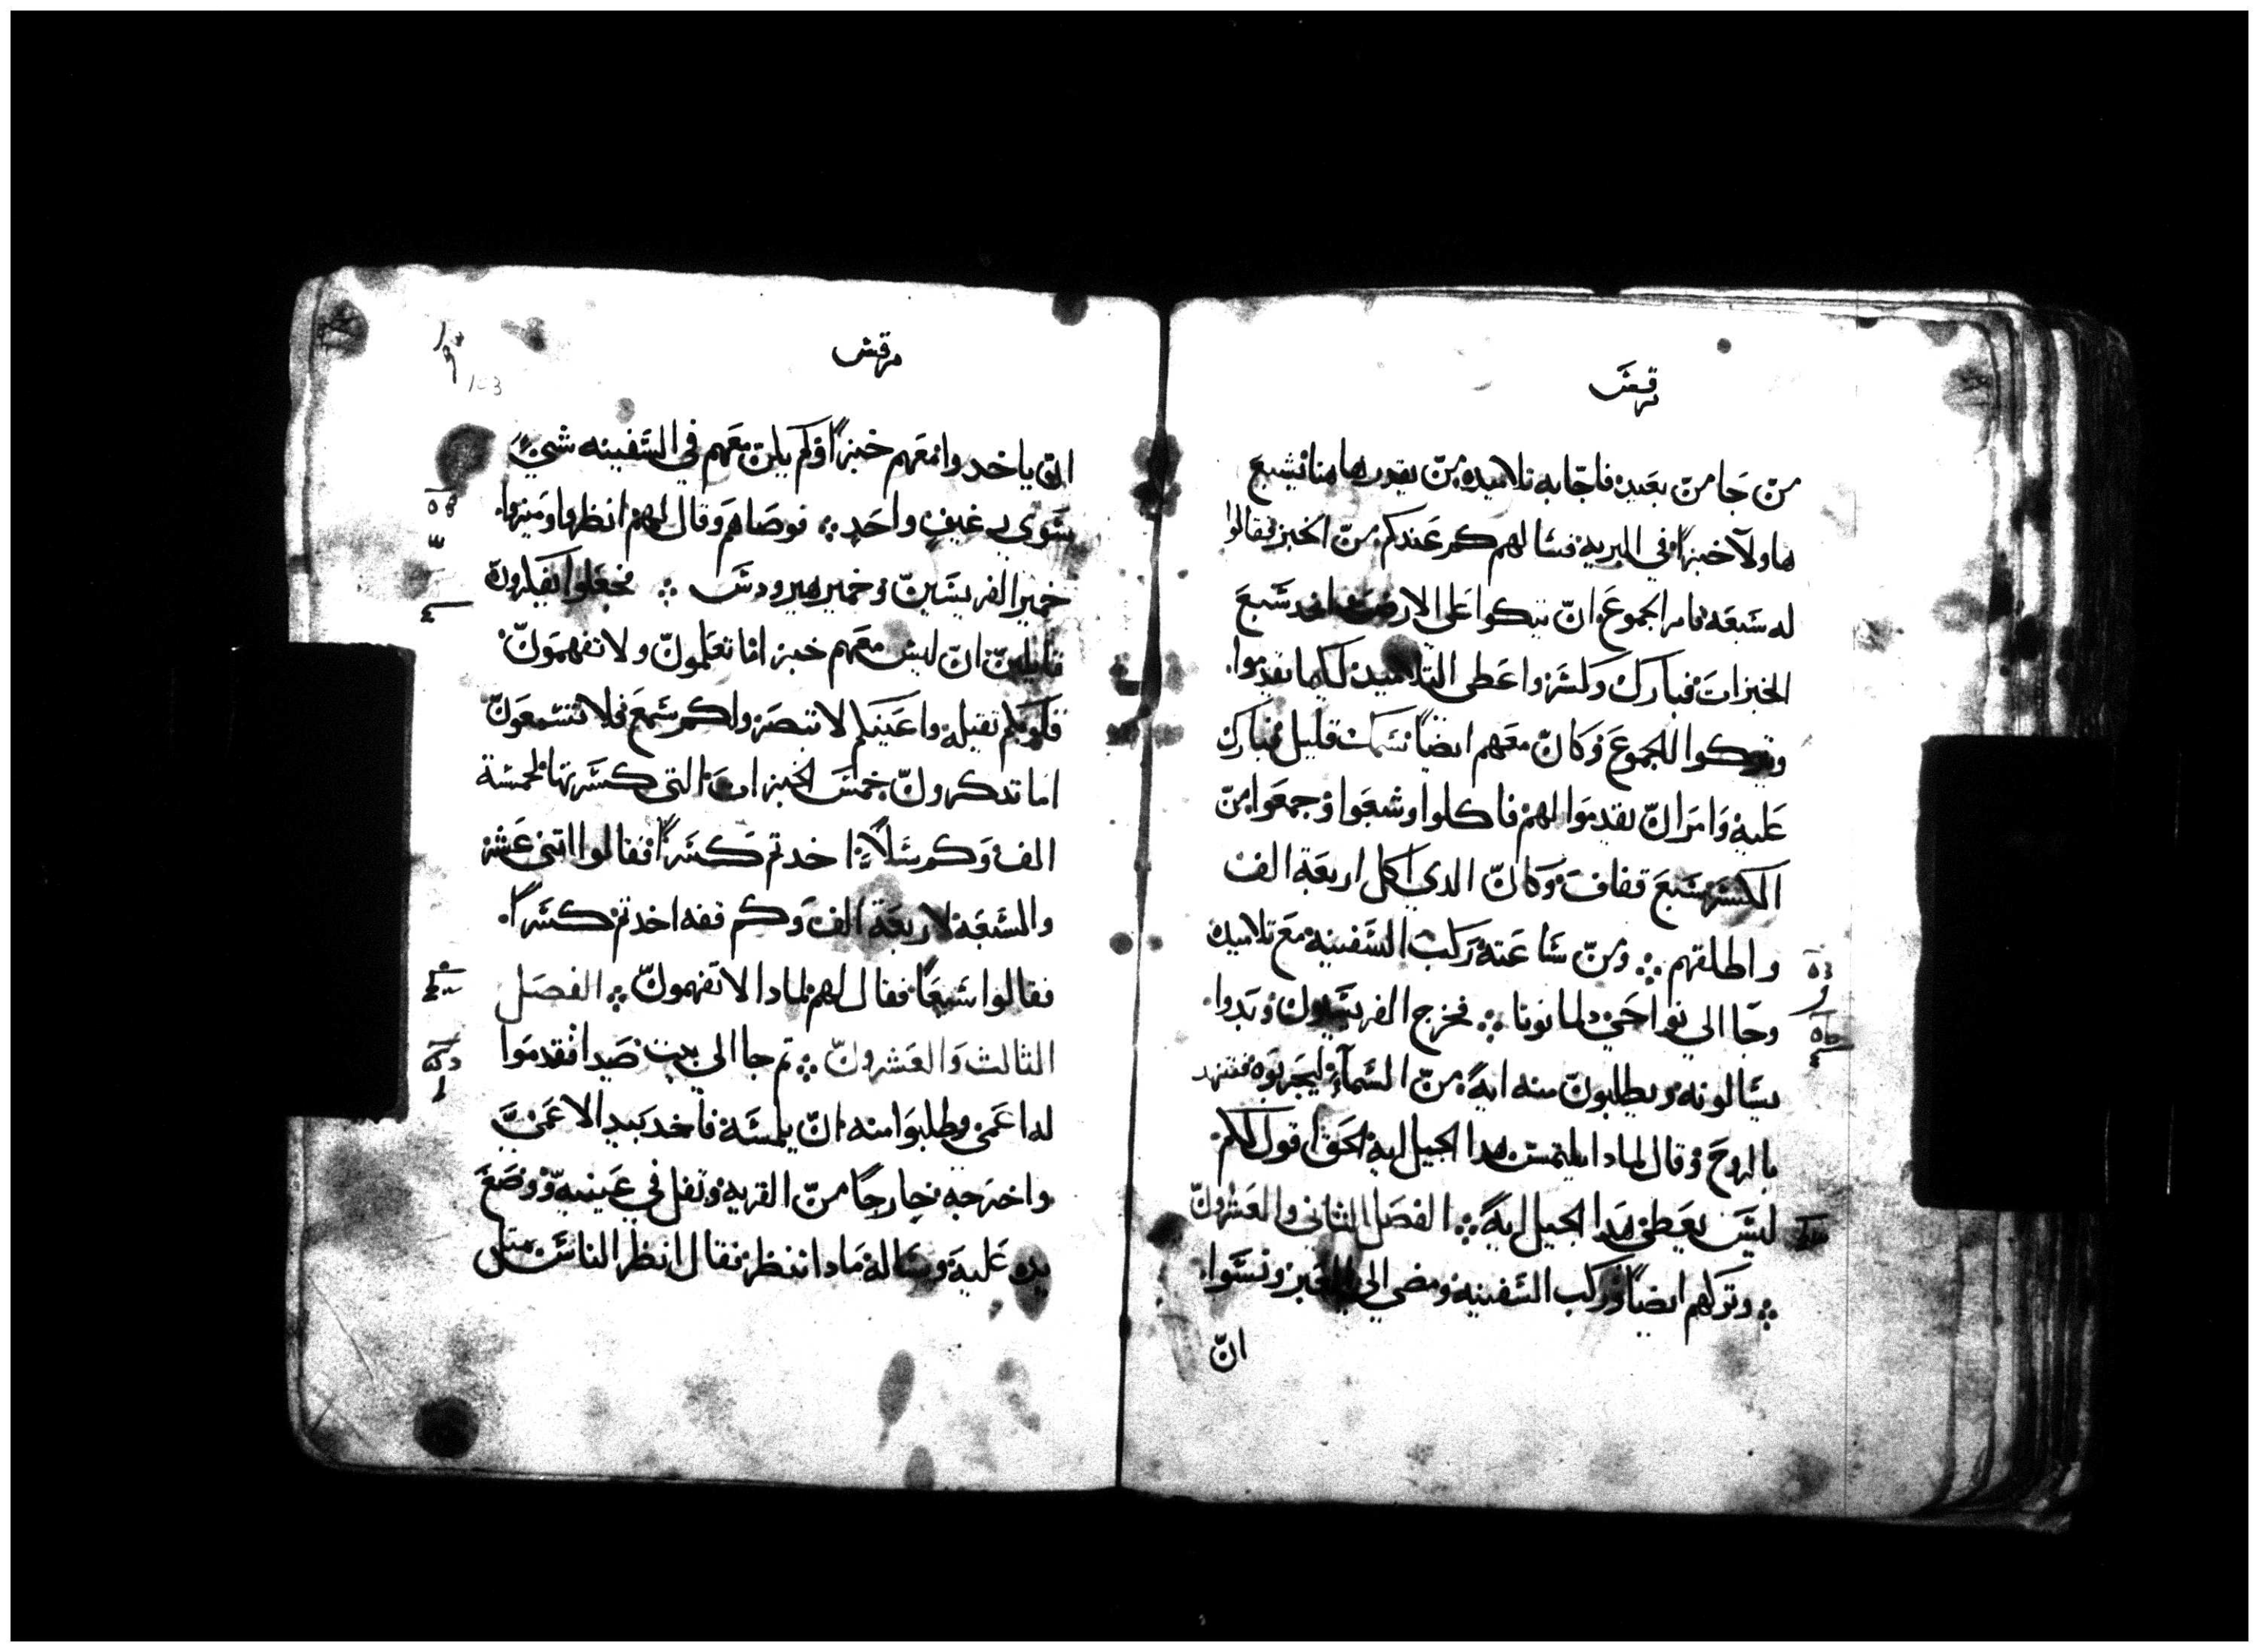 مرقش
من جا من بعيد فاجابه تلاميده من يقدر هاهنا يشبع
هاولآ خبزاً في البريه فسالهم كم عندكم من الخبز فقالوا
له سبعه فامر الجموع ان يتكوا على الارض واخد سبع
الخبزات فبارك وكسر واعطى التلاميد لكيما يقدموا
للجموع وكان معهم ايضاً سمكات قليل فبارك
عليه وامر ان يقدموا لهم فاكلوا وشبعوا وجمعوا من
الكسر سبع قفاف وكان الدي اكل اربعة الف
واطلقهم ومن ساعته ركب السفينه مع تلاميده
وجا الي نواحي دلمانونا فخرج الفريسيون وبدوا
يسالونه ويطلبون منه ايه من السمآء ليجربوه فتنهد
بالروح وقال لمادا يلتمس هدا الجيل ايه الحق اقول لكم
ليس يعطى هدا الجيل ايه الفصل الثاني والعشرون
وتركهم ايضاً وركب السفينه ومضى الي العبر ونسوا
ان
مرقش
103
ان ياخدوا معهم خبزاً ولم يكن معهم في السفينه شي
سوى رغيف واحد فوصاهم وقال لهم انظروا وميزوا
خمير الفريسين وخمير هيرودس فجعلوا يفكرون
قايلين ان ليس معهم خبز اما تعلمون ولا تفهمون
قلوبكم تقيله واعينكم لا تبصر ولكم سمع فلا تسمعون
اما تدكرون خمس الخبزات التي كسرتها لخمسة
الف وكم سلاً اخدتم كسراً فقالوا اتنى عشر
والسبعه لاربعة الف وكم قفه اخدتم كسراً
فقالوا سبعاً فقال لهم لمادا لا تفهمون الفصل
الثالث والعشرون تم جا الي بيت صيدا فقدموا
له اعمى وطلبوا منه ان يلمسه فاخد بيد الاعمى
واخرجه خارجاً من القريه وتفل في عينيه ووضع
يده عليه وساله مادا تنظر فقال انظر الناس متل